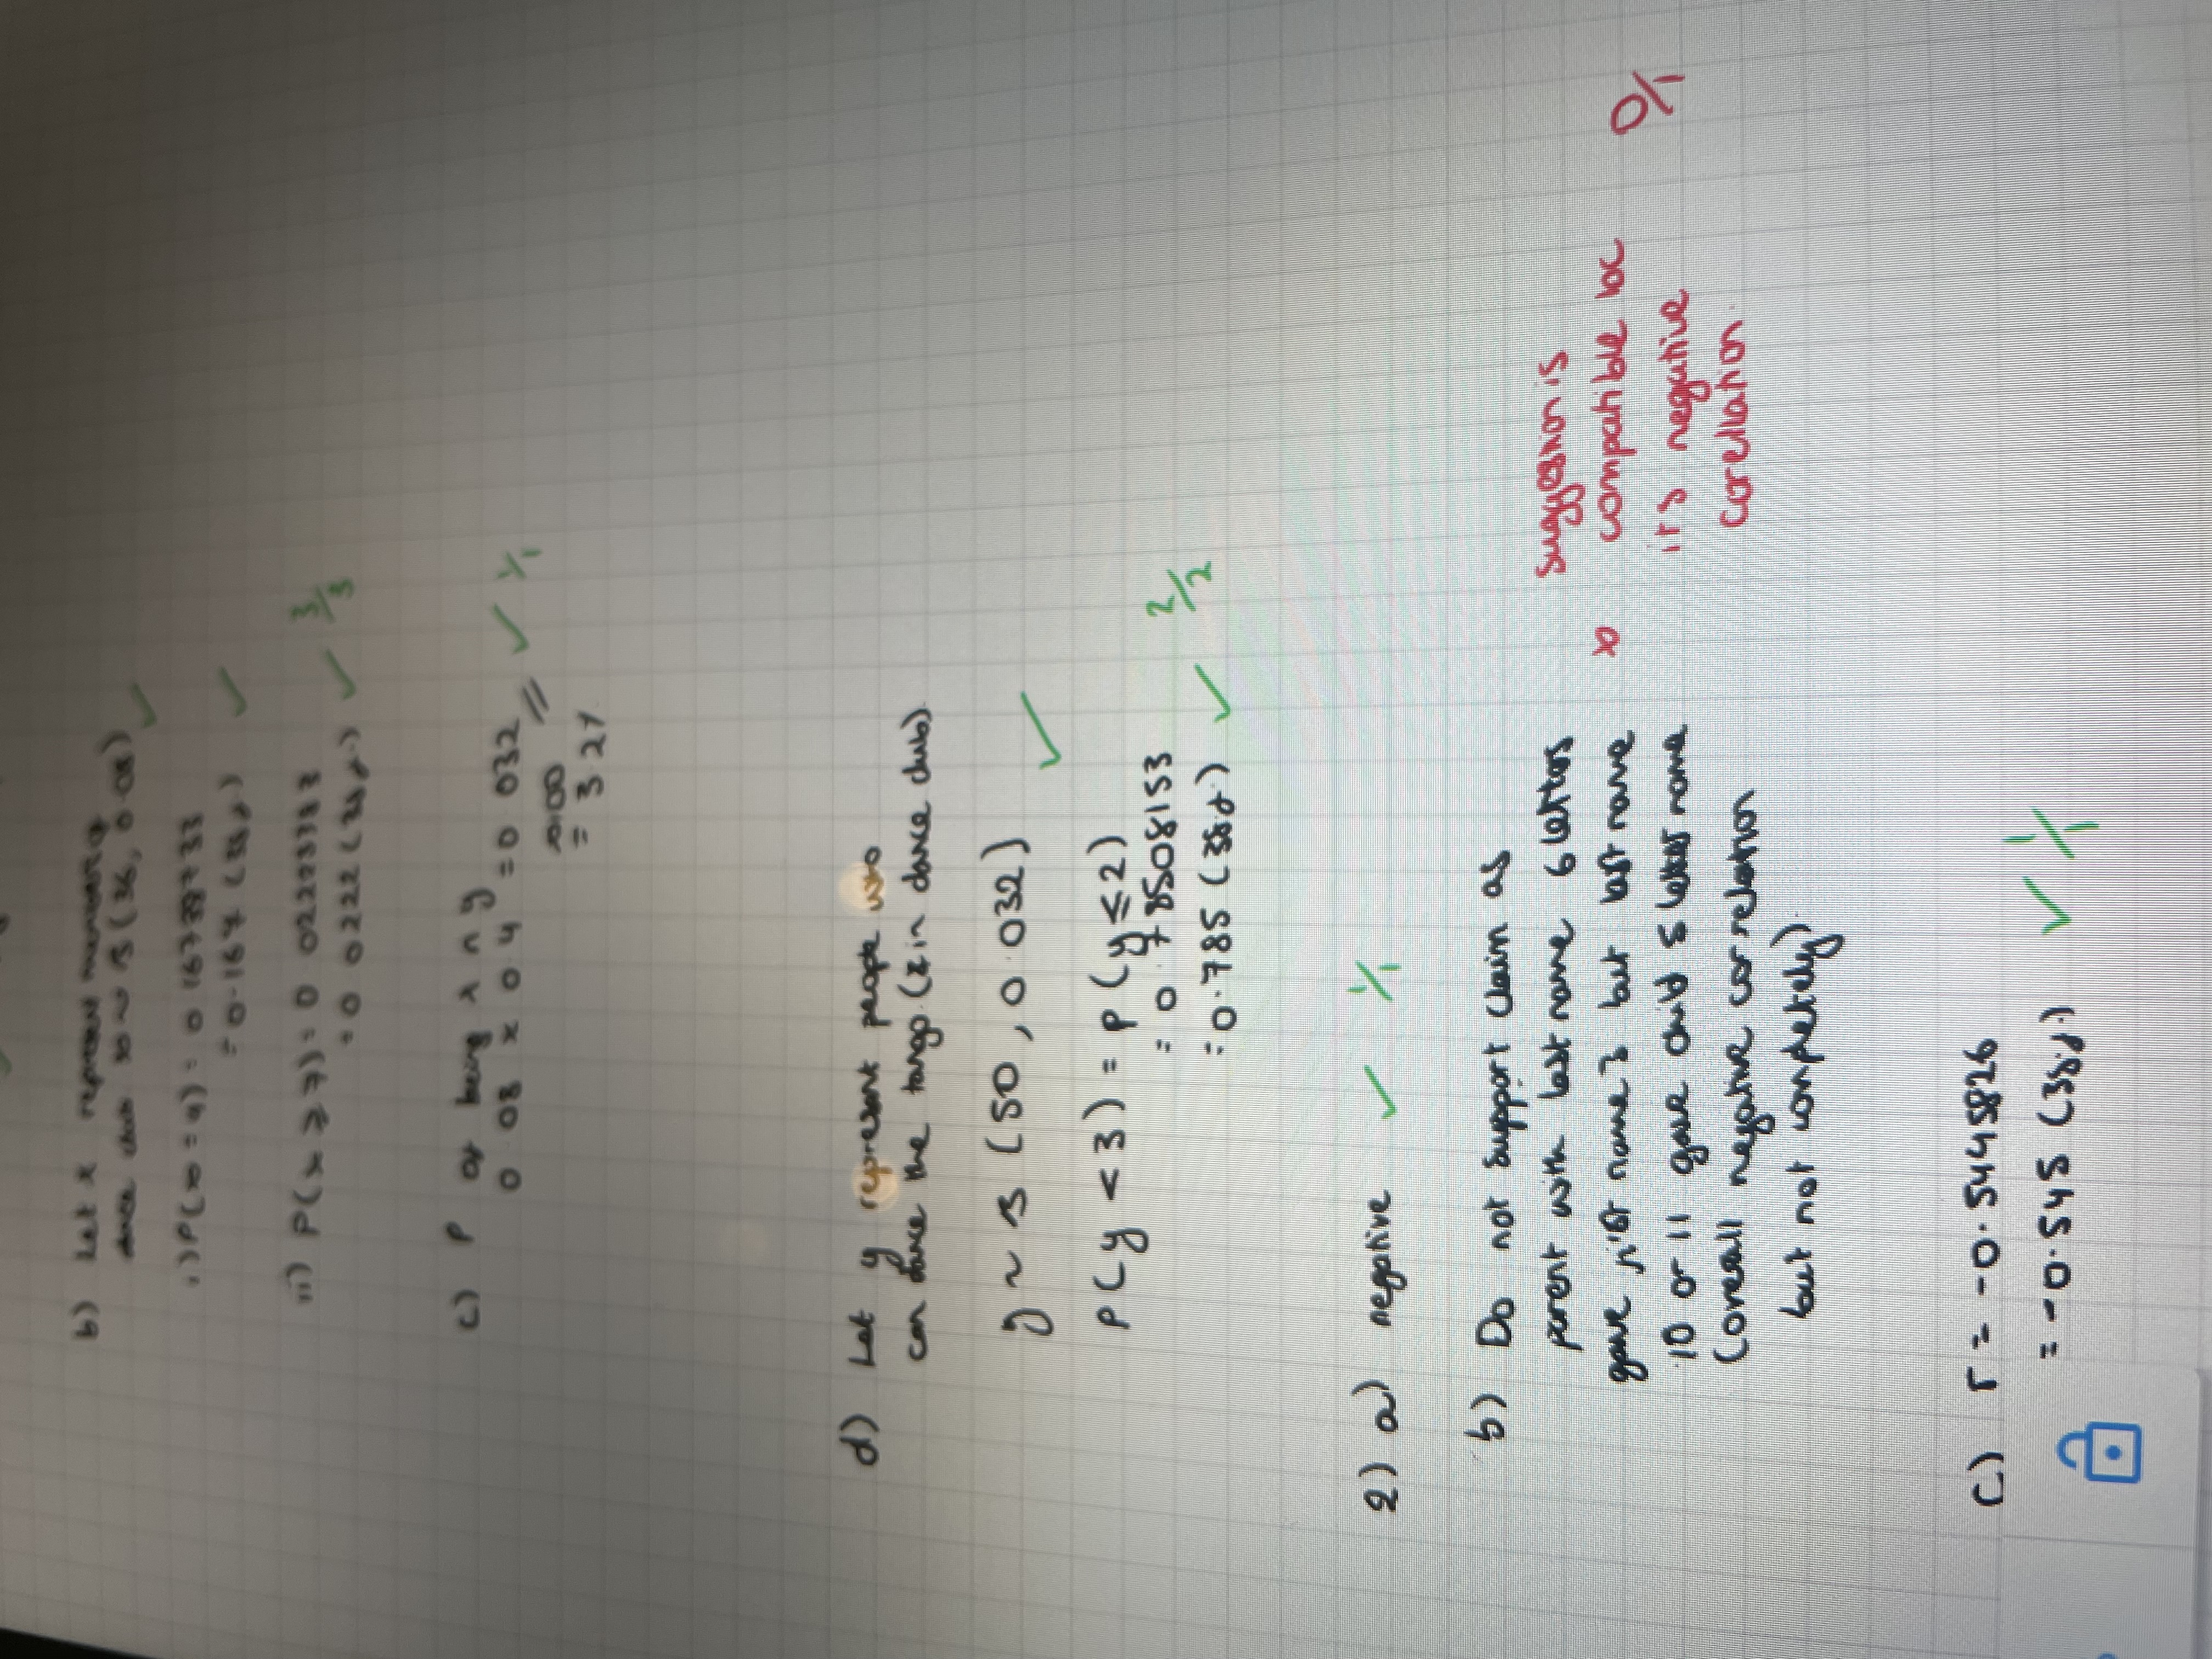 b) Let x represent number of
dance club x ~ B(36, 0.08) ✓
i) P(x = 4) = 0.167387733
= 0.167 (3s.f.) ✓
ii) P(x ≥ 7) = 0.02223383
= 0.0222 (3s.f.) ✓ 3/3
c) P of being x n y
0.08 x 0.4 = 0.032 ✓ 1/1
x100
= 3.2%
d) Let y represent people who
can dance the tango. (& in dance club).
y ~ B (50, 0.032) ✓
P(y < 3) = P(y ≤ 2)
= 0.78508153 2/2
= 0.785 (3s.f.) ✓
2) a) negative ✓ 1/1
b) Do not support claim as
parent with last name 6 letters
gave 1st name 3 but last name
10 or 11 gave child 5 letter name
(overall negative correlation
but not completely)
suggestion is
x compatible bc 0/1
it's negative
correllation.
c) r = -0.5445826
= -0.545 (3s.f.) ✓ 1/1